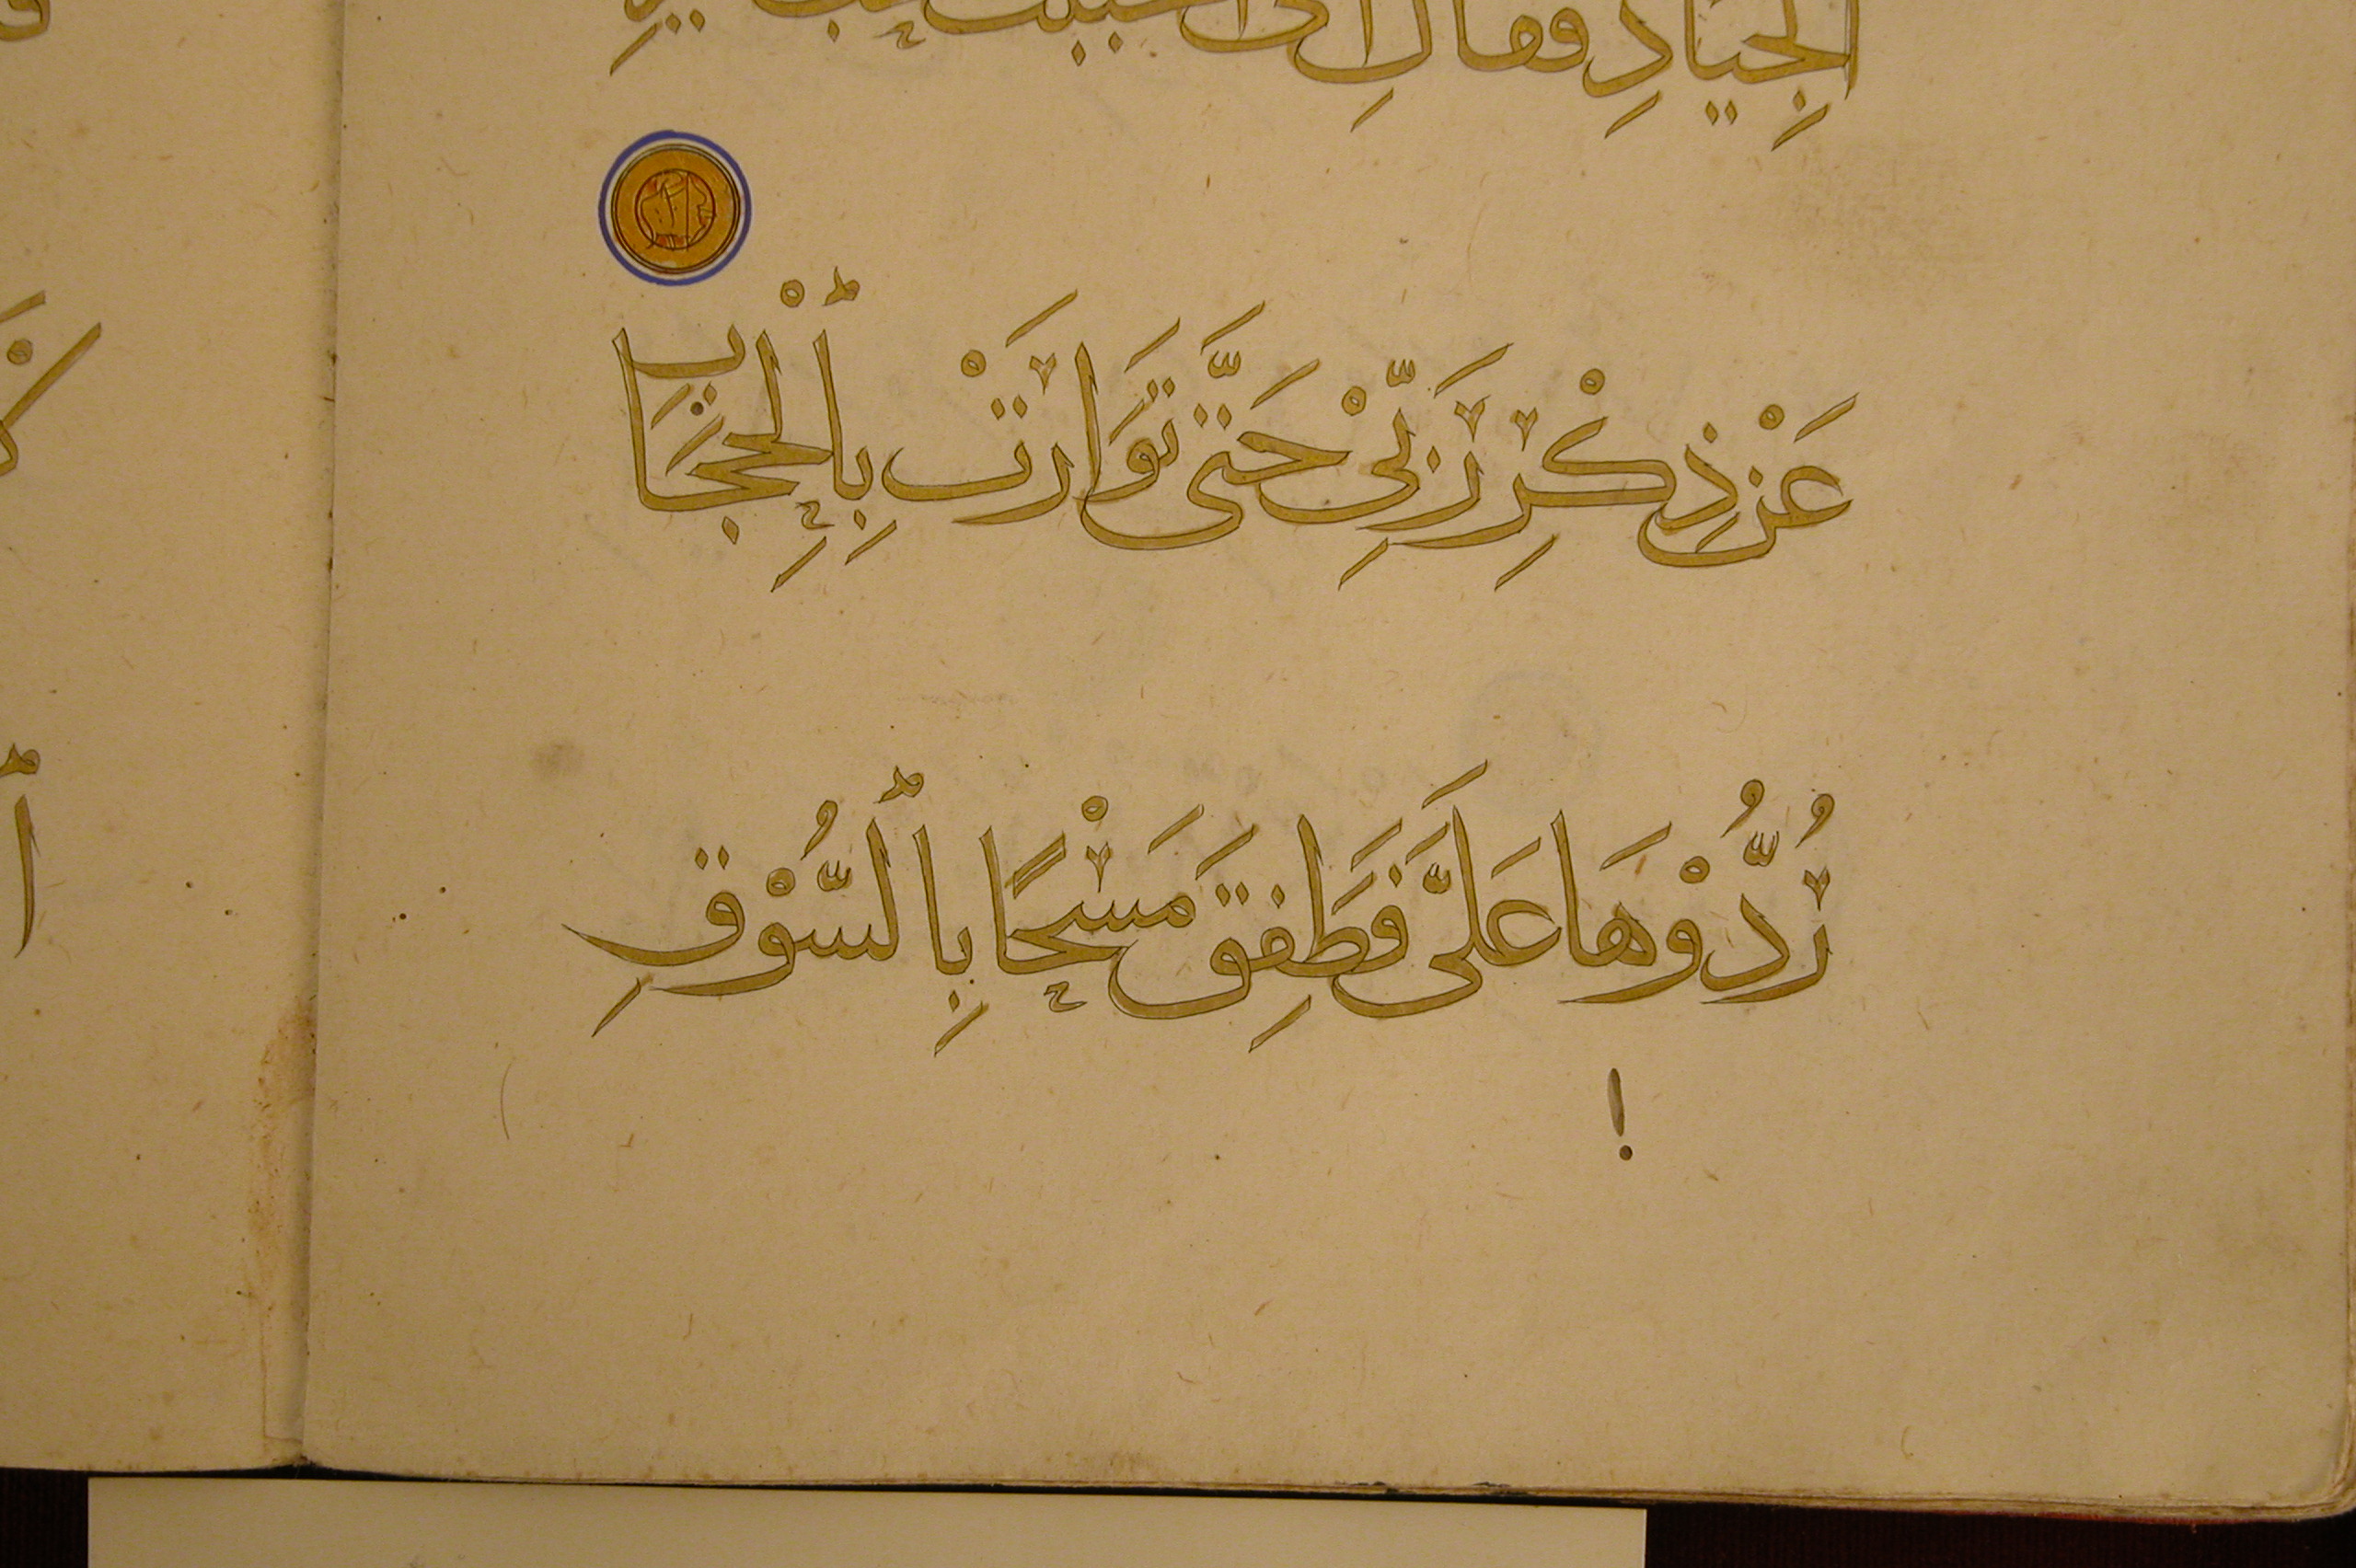 الجِيَادِ فقال اِنى احببت حب
عَنْ ذِكْرِ رَبِّىْ حَتَّى تَوَارَتْ بِٱلْحِجَابِ
رُدُّوْهَا عَلَىَّ فَطَفِقَ مَسْحًا بِٱلسُّوْقِ